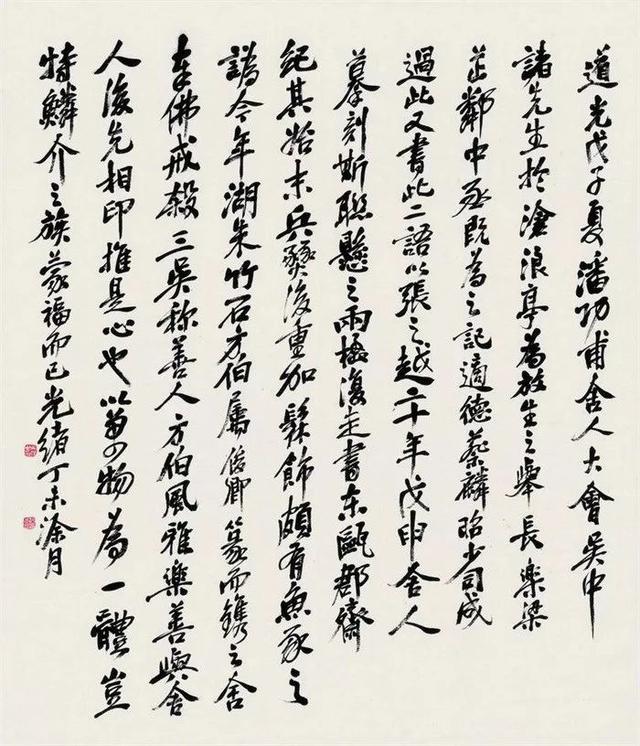 道光戊子夏潘功甫舍人大會吳中
諸先生於滄浪亭為放生之舉長樂梁
茝鄰中丞既為之記適德蔡麟昭少司成
過此又書此二語以張之越二十年戊申舍人
摹刻斯聯懸之兩楹復走書東甌郡齋
紀其始末兵燹後重加髹飾頗有魚豕之
譌今年湖朱竹石方伯屬俊卿篆而鐫之舍
佛戒殺三吳稱善人方伯風雅樂善與舍
人後先相印推是心也以萬物為一體豈
特鱗介之族蒙福而已光緒丁未涂月